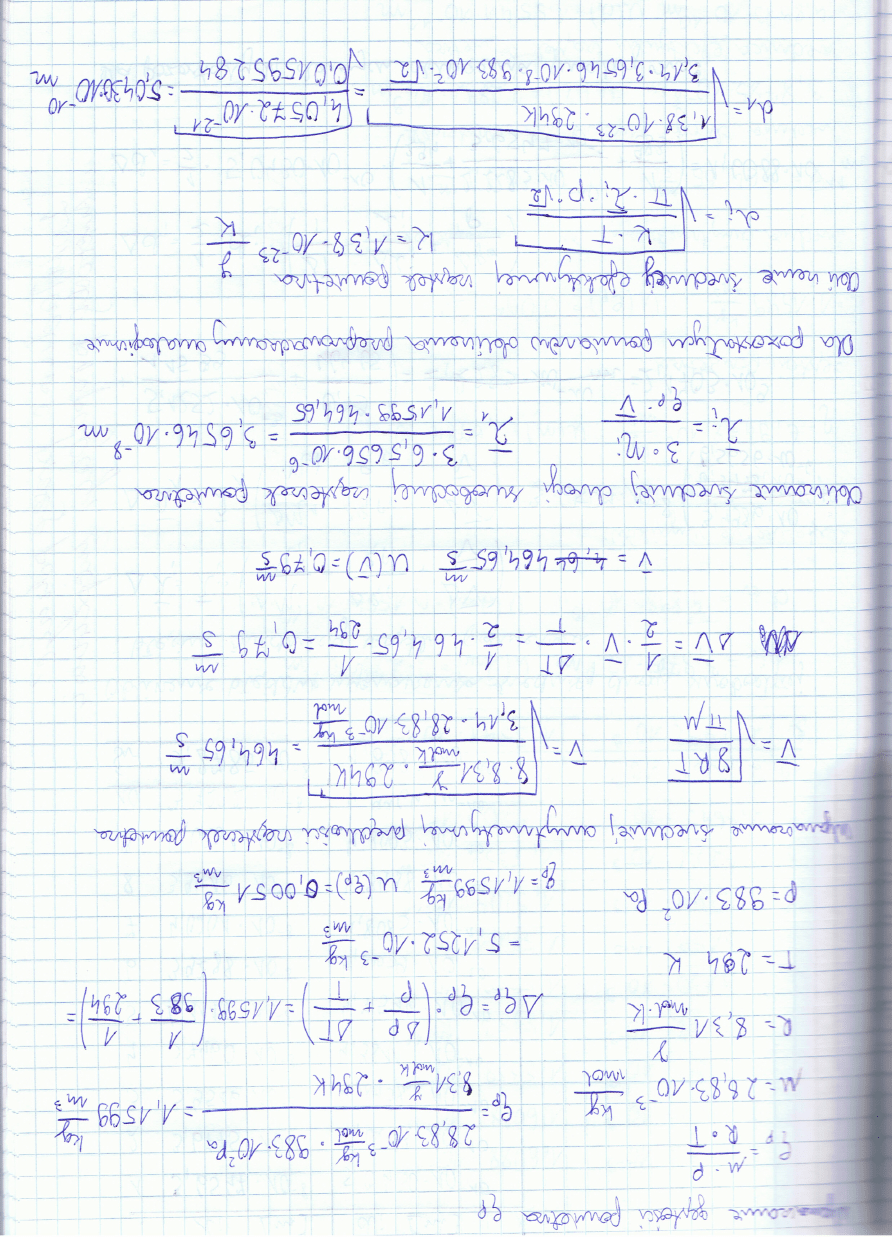 Wyznaczanie gęstości powietrza ρp
ρp = M·p / R·T
ρp = 28,83·10⁻³ kg/mol · 983·10² Pa / 8,31 J/mol K · 294K = 1,1599 kg/m³
M = 28,83·10⁻³ kg/mol
R = 8,31 J/mol·K
Δρp = ρp·(Δp/p + ΔT/T) = 1,1599·(1/983 + 1/294) =
T = 294 K
= 5,1252·10⁻³ kg/m³
p = 983·10² Pa
ρp = 1,1599 kg/m³ u(ρp) = 0,0051 kg/m³
Wyznaczanie średniej arytmetycznej prędkości cząsteczek powietrza
V̄ = √(8RT / πM) V̄ = √(8·8,31 J/mol K · 294K / 3,14·28,83·10⁻³ kg/mol) = 464,65 m/s
ΔV̄ = 1/2 · V̄ · ΔT/T = 1/2 · 464,65 · 1/294 = 0,79 m/s
V̄ = 464,65 m/s u(V̄) = 0,79 m/s
Obliczanie średniej drogi swobodnej cząsteczek powietrza
λ̄i = 3·ηi / ρp·V̄ λ̄1 = 3·6,5656·10⁻⁶ / 1,1599·464,65 = 3,6546·10⁻⁸ m
Dla pozostałych pomiarów obliczenia przeprowadzamy analogicznie
Obliczenie średnicy efektywnej cząstek powietrza
di = √(k·T / π·λ̄i·p·√2) k = 1,38·10⁻²³ J/K
d1 = √(1,38·10⁻²³·294K / 3,14·3,6546·10⁻⁸·983·10²·√2) = √(4,0572·10⁻²¹ / 0,01595284) = 5,0430·10⁻¹⁰ m